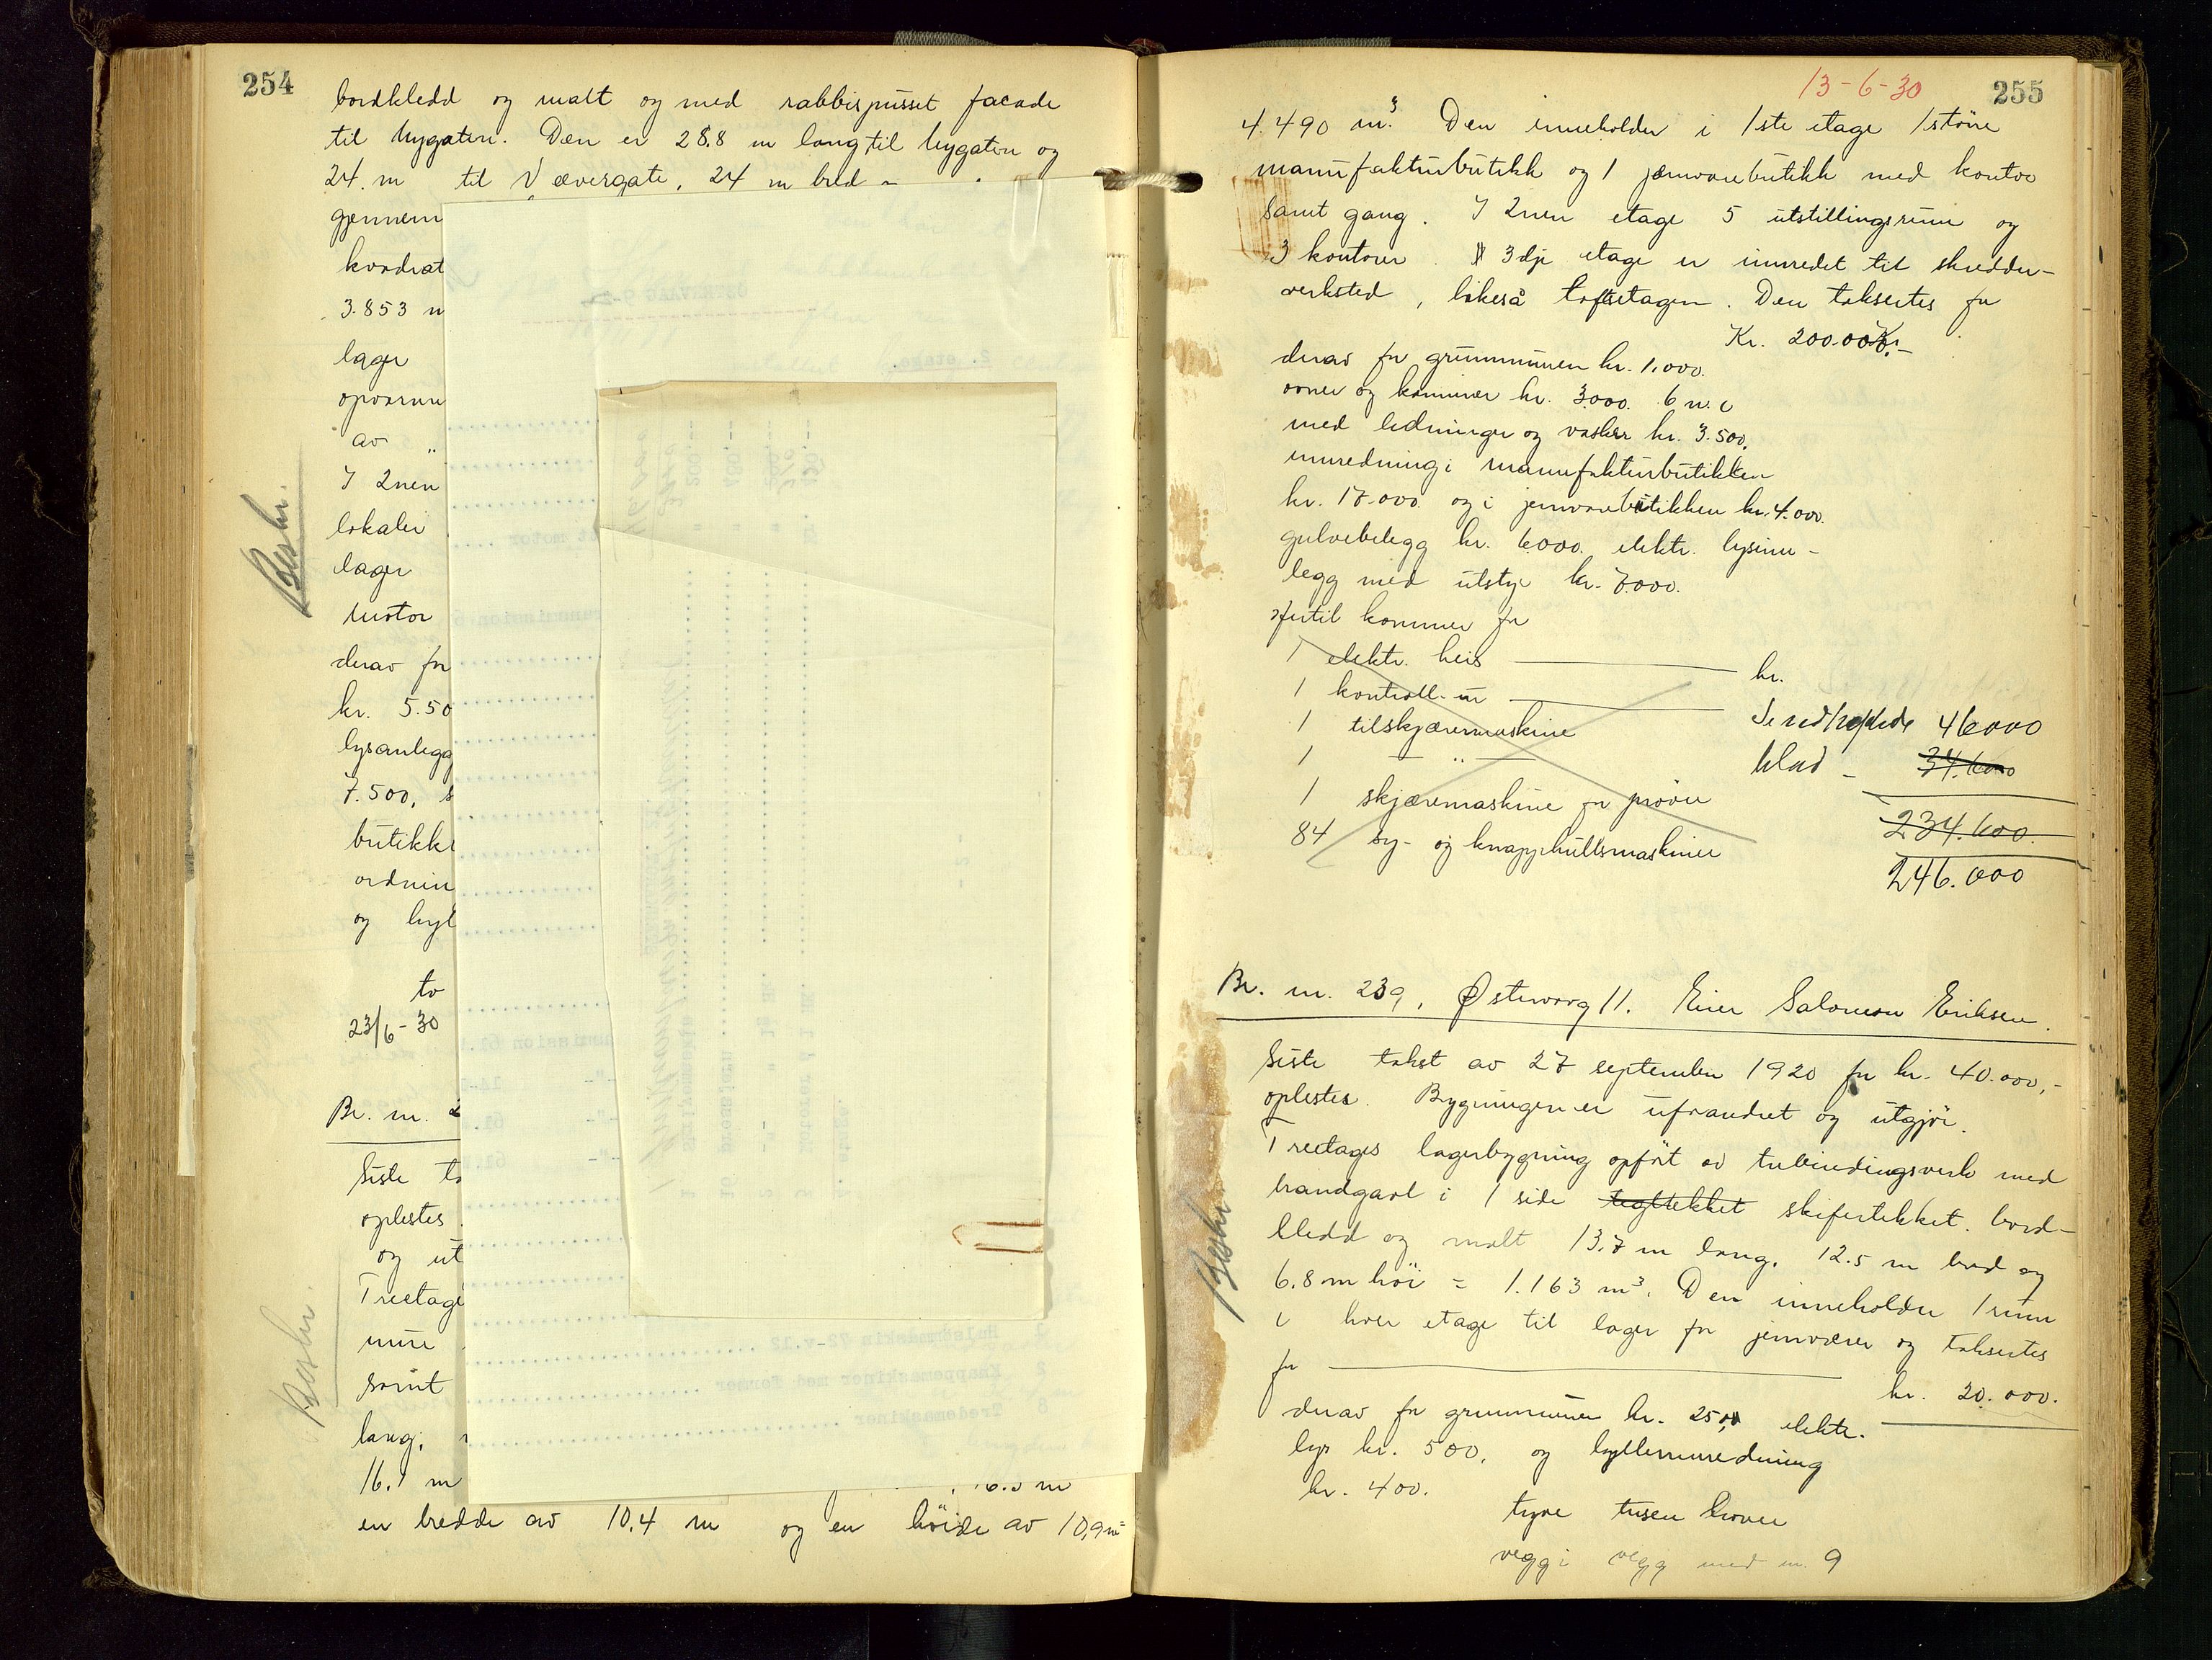 254
bordkledd og malt og med rabbispusset facade
til Nygaten. Den er 28.8 m lang til Nygaten og
24. m til Vævergate, 24 m bred -
gjennem
kvadrat
3.853 m
lager
opvarme
av "
I 2nen
lokaler
lager
motor
derav for
kr. 5.50
lysanlegg
7.500, s
butikk
ordnin
og hyl
to
23/6-30
Br. nr. 2
Siste ta
oplestes
og ut
Treetage
mure
samt
lang,
16.1 m
en bredde av 10.4 m og en höide av 10,9 m =
Beskr.
Beskr.
ØSTERVAAG 9-
2. etage.
t motor
Hulsømmaskin 72-v.12
2 Knappemaskiner med former
8 Trædemaskiner
13-6-30
255
4.490 m³. Den inneholder i 1ste etage 1 större
manufakturbutikk og 1 jernvarebutikk med kontor
samt gang. I 2nen etage 5 utstillingsrum og
3 kontorer. I 3dje etage er innredet til skredder-
verksted, likeså loftsetagen. Den takseres for
Kr. 200.000.-
derav for grunnmuren kr. 1.000.
ovner og kaminer kr. 3.000. 6 w.c
med ledninger og vasker kr. 3.500.
innredning i manufakturbutikken
kr. 17.000. og i jernvarebutikken kr. 4.000.
gulvbelegg kr. 6000. elektr. lysinn-
legg med utstyr kr. 7.000.
Hertil kommer for
1 elektr. heis kr.
1 kontroll-ur
1 tilskjæremaskine Se vedheftede 46000
1 — " — blad - 34.600
1 skjæremaskine for pröver
234.600.
84 sy- og knapphullsmaskiner
246.000
Br. nr. 239, Østervaag 11. Eier Salomon Eriksen.
Siste takst av 27 september 1920 for kr. 40.000,-
oplestes. Bygningen er uforandret og utgjör.
Treetages lagerbygning opfört av trebindingsverk med
brandgavl i 1 side tegltekket skifertekket. bord-
kledd og malt 13,7 m lang, 12.5 m bred og
6.8 m höi = 1.163 m³. Den inneholder 1 rum
i hver etage til lager for jernvarer og takseres
for kr. 20.000.
derav for grunnmuren kr. 250, elektr.
lys kr. 500. og hylleinnredning
kr. 400.
tyve tusen kroner
vegg i vegg med nr. 9
Beskr